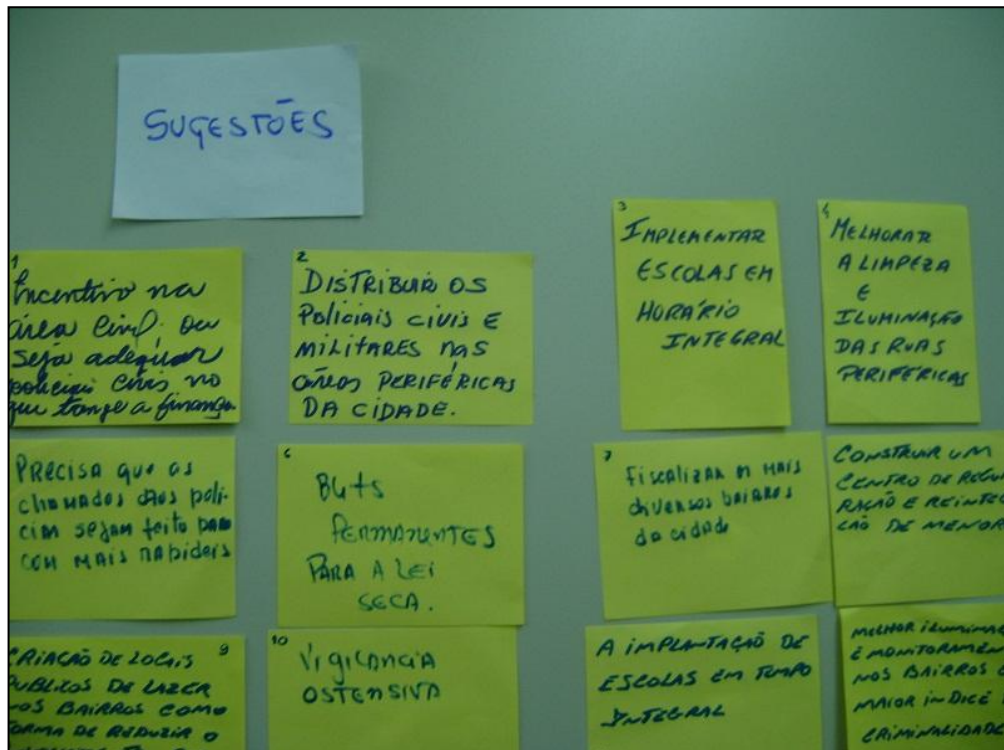 SUGESTÕES
1
Incentivo na
área Civil. ou
seja adequar
policiais civis no
que tange a finança
2
DISTRIBUIR OS
POLICIAIS CIVIS E
MILITARES NAS
ÁREAS PERIFÉRICAS
DA CIDADE.
3
IMPLEMENTAR
ESCOLAS EM
HORÁRIO
INTEGRAL
4
MELHORAR
A LIMPEZA
E
ILUMINAÇÃO
DAS RUAS
PERIFÉRICAS
PRECISA QUE OS
chamados dos poli-
cim sejam feito para
com mais rapideis
6
Blits
PERMANENTES
PARA A LEI
SECA.
7
Fiscalizar os mais
diversos bairros
da cidade
CONSTRUIR UM
CENTRO DE RECU
RAÇÃO E REINTEG
ÇÃO DE MENOR
9
CRIAÇÃO DE LOCAIS
PUBLICOS DE LAZER
NOS BAIRROS COMO
FORMA DE REDUZIR O
10
Vigilancia
OSTENSIVA
A IMPLANTAÇÃO DE
ESCOLAS EM TEMPO
INTEGRAL
MELHOR ILUMINAÇ
E MONITORAMEN
NOS BAIRROS
MAIOR INDICE
CRIMINALIDADE